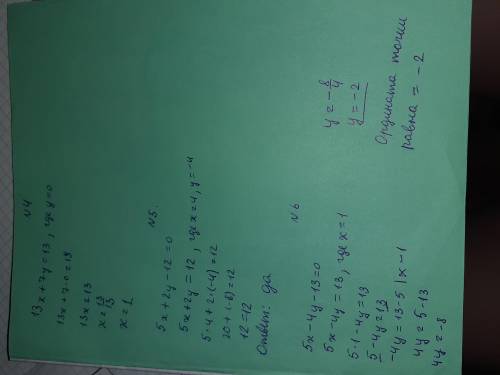 №4
13x + 7y = 13, где y=0
13x + 7·0 = 13
13x = 13
x = 13/13
x = 1
№5.
5x + 2y - 12 = 0
5x + 2y = 12, где x = 4, y = -4
5·4 + 2·(-4) = 12
20 + (-8) = 12
12 = 12
Ответ: да
№6
5x - 4y - 13 = 0
5x - 4y = 13, где x = 1
5·1 - 4y = 13
5 - 4y = 13
-4y = 13 - 5 | x - 1
4y = 5 - 13
4y = -8
y = -8/4
y = -2
Ордината точки
равна = -2